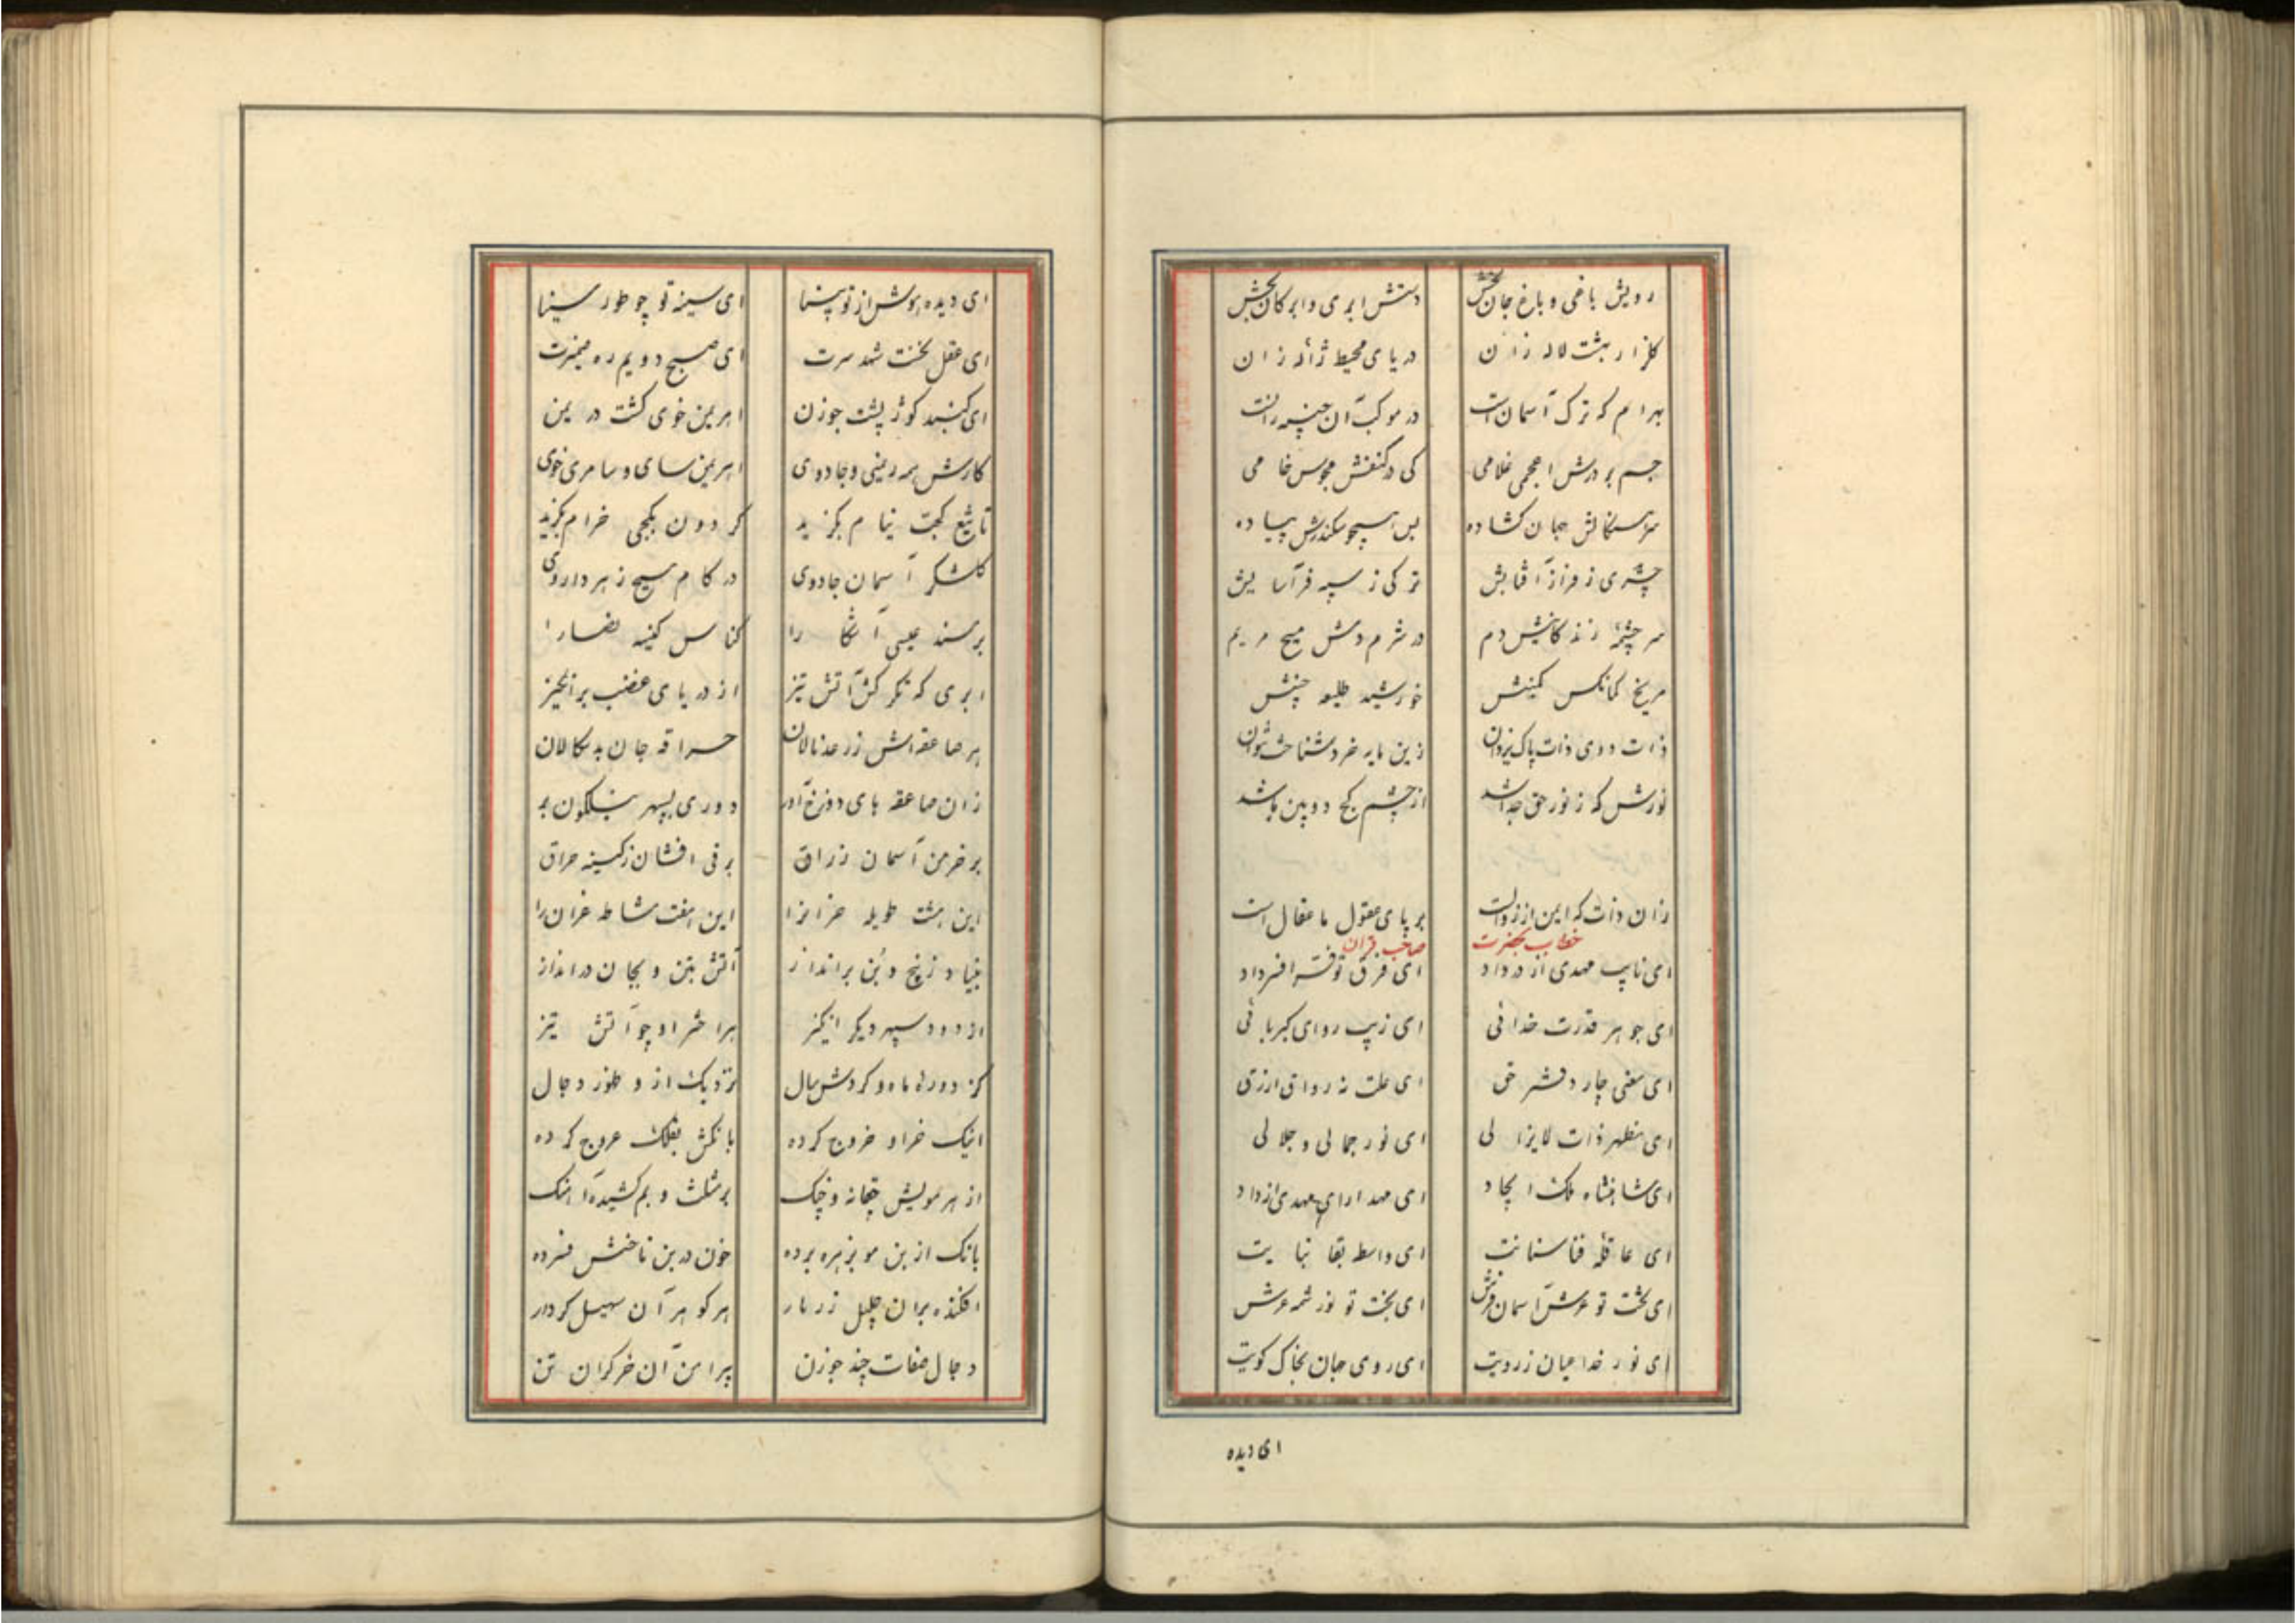 رویش باغی و باغ جان بخش دستش ابری و ابر کان بخش
گلزار بهشت لاله زان دریای محیط ژاله زان
بهرام که ترک آسمان است در موکب آن
جم بر درش اعجمی غلامی کی در کنفش مجوس خامی
جهان گشاده بس همچو سکندرش پیاده
چتری ز فراز آفتابش ترکی ز سپه
سر چشمهٔ زندگانیش دم در شرم دمش مسیح مریم
مریخ کمانکش کمینش خورشید
ذات ووی ذات پاک یزدان زین مایه خرد شناخت نتوان
نورش که ز نور حق جدا شد از چشم کج دوبین باشد
زان ذات که ایمن از زوال است بر پای عقول ما عقال است
خطاب بحضرت صاحب قران
ای نایب مهدی از در داد ای فرق تو فر افسر داد
ای جوهر قدرت خدائی ای زیب ردای کبریائی
ای معنی چار دفتر حق ای علت نه رواق ازرق
ای مظهر ذات لایزالی ای نور جمالی و جلالی
ای شاهنشاه ملک ایجاد ای مهد ارای مهدی از داد
ای عاقله فنا ای واسطه بقا
ای تخت تو عرش آسمان فرش ای بخت تو نور عرش
ای نور خدا عیان ز رویت ای روی جهان بخاک کویت
ای دیده
ای دیده هوش از تو بینا ای سینه تو چو طور سینا
ای عقل نخست شد سرت ای صبح دویم
ای گنبد کوژ پشت جوزن اهریمن خوی گشت در یمن
کارش همه ریمنی و جادوی اهریمن سای و سامری خوی
تا تیغ کجت نیام بگزید گردون بکجی خرام بگزید
کاشکر آسمان جادوی در کام مسیح زهر داروی
بر مسند عیسی آشکارا کناس کنیسه نصارا
ابری که تگرگش آتش تیز از دریای غضب برانگیز
هر صاعقه اش ز رعد نالان حراقه جان بد سکالان
زان صاعقه های دوزخ آور دوری بسپهر نیلگون بر
بر خرمن آسمان زراق برقی افشان ز کینه حراق
این هشت طویله خرانرا این هفت مشاطه غران را
بنیاد ز بیخ و بن برانداز آتش بتن و بجان درانداز
از دود سپهر دیگر انگیز هر اختر او چو آتش تیز
کز دوره ماه و گردش سال نزدیک از و ظهور دجال
اینک خر او خروج کرده بانگش بفلک عروج کرده
از هر مویش چغانه و چنگ بر مثلث و بم کشیده آهنگ
بانگ از بن مو بزهره برده خون در بن ناخنش فسرده
افکنده بران جلیل زرتار هر گوهر آن سهیل کردار
دجال صفات چند جوزن پیرامن آن خر گران تن